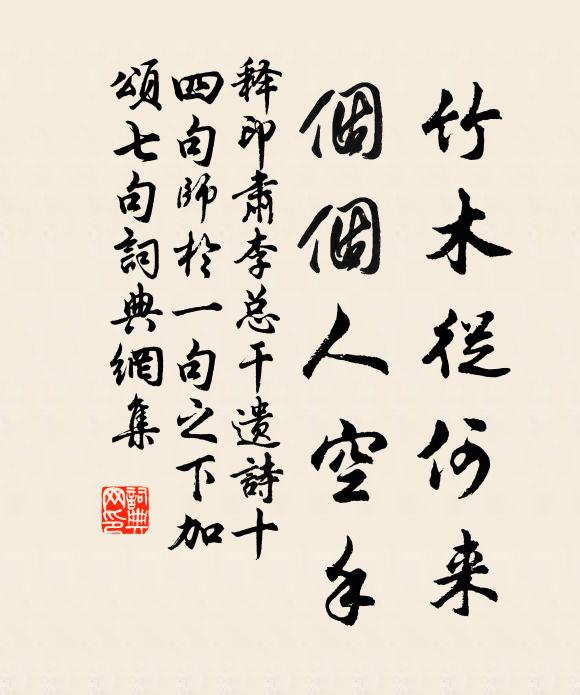 竹木從何来
個個人空手
释印肅李总干遺詩十
四句師於一句之下加
頌七句詞典網集
詞典
网印